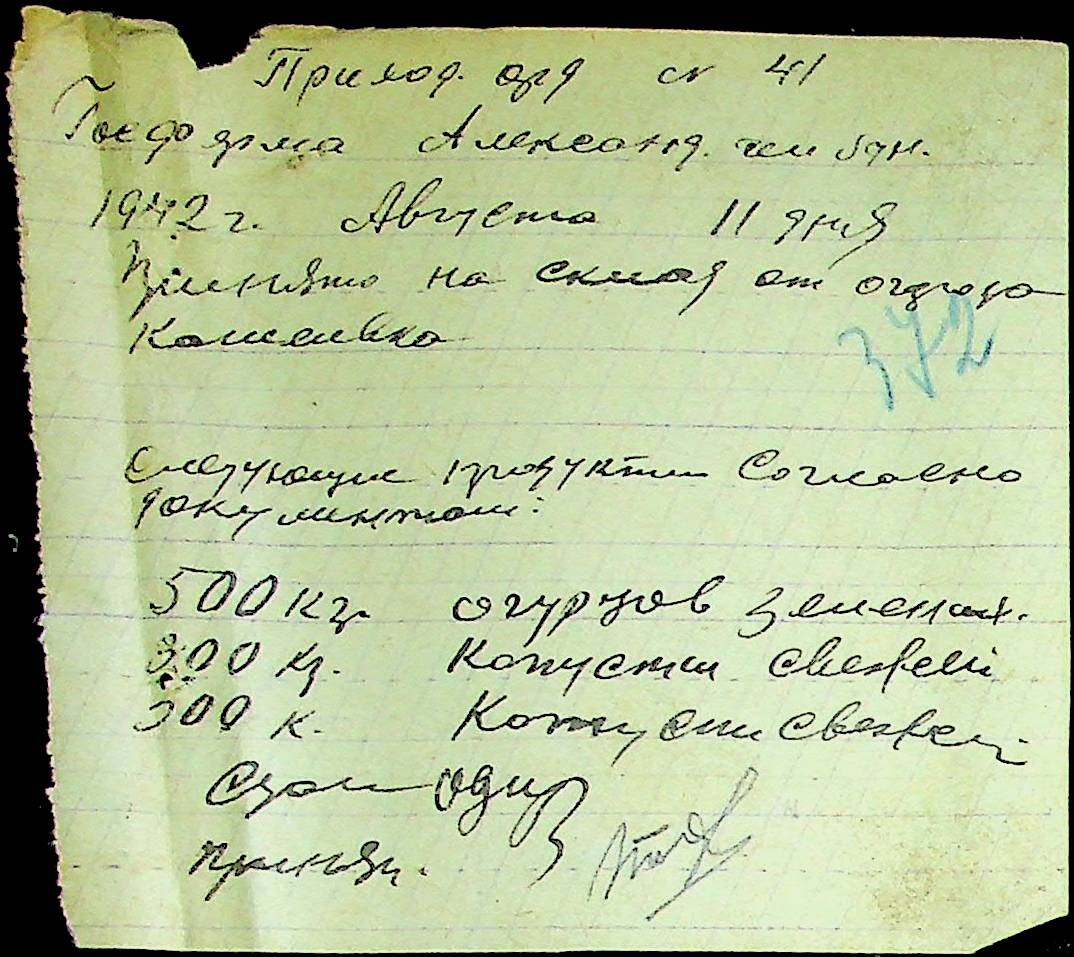 Приход. орд № 41
Госферма Александ.
1942 г. Августа 11 дня
Принято на склад от огорода
372
Следующие продукти Согласно
документам:
500 Кг. огурцов зелених.
300 Кг. Капусти свежей
300 К. Капусти свежей
Сдал
принял.